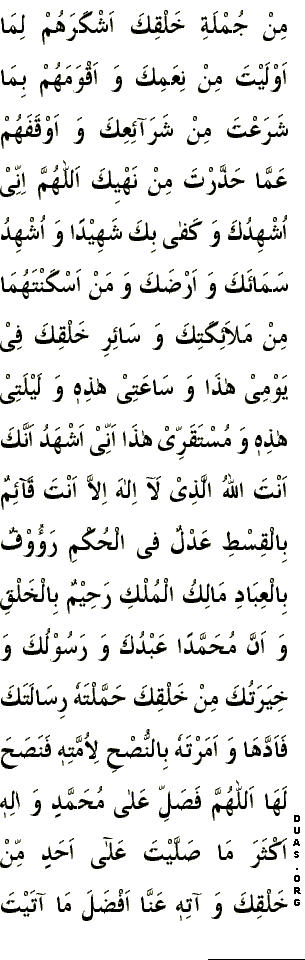 مِنْ جُمْلَةِ خَلْقِكَ اَشْكَرَهُمْ لِمَا
اَوْلَيْتَ مِنْ نِعَمِكَ وَ اَقْوَمَهُمْ بِمَا
شَرَعْتَ مِنْ شَرَآئِعِكَ وَ اَوْقَفَهُمْ
عَمَّا حَذَّرْتَ مِنْ نَهْيِكَ اَللّٰهُمَّ اِنِّىْ
اُشْهِدُكَ وَ كَفٰى بِكَ شَهِيْدًا وَ اُشْهِدُ
سَمَائَكَ وَ اَرْضَكَ وَ مَنْ اَسْكَنْتَهُمَا
مِنْ مَلَآئِكَتِكَ وَ سَائِرِ خَلْقِكَ فِىْ
يَوْمِىْ هٰذَا وَ سَاعَتِىْ هٰذِهٖ وَ لَيْلَتِىْ
هٰذِهٖ وَ مُسْتَقَرِّىْ هٰذَا اَنِّىْ اَشْهَدُ اَنَّكَ
اَنْتَ اللّٰهُ الَّذِىْ لَآ اِلٰهَ اِلاَّ اَنْتَ قَآئِمٌ
بِالْقِسْطِ عَدْلٌ فِى الْحُكْمِ رَؤُوْفٌ
بِالْعِبَادِ مَالِكُ الْمُلْكِ رَحِيْمٌ بِالْخَلْقِ
وَ اَنَّ مُحَمَّدًا عَبْدُكَ وَ رَسُوْلُكَ وَ
خِيَرَتُكَ مِنْ خَلْقِكَ حَمَّلْتَهٗ رِسَالَتَكَ
فَاَدَّهَا وَ اَمَرْتَهٗ بِالنُّصْحِ لِاُمَّتِهٖ فَنَصَحَ
لَهَا اَللّٰهُمَّ فَصَلِّ عَلٰى مُحَمَّدٍ وَ اٰلِهٖ
اَكْثَرَ مَا صَلَّيْتَ عَلٰٓى اَحَدٍ مِّنْ
خَلْقِكَ وَ اٰتِهٖ عَنَّا اَفْضَلَ مَا اٰتَيْتَ
DUAS.ORG